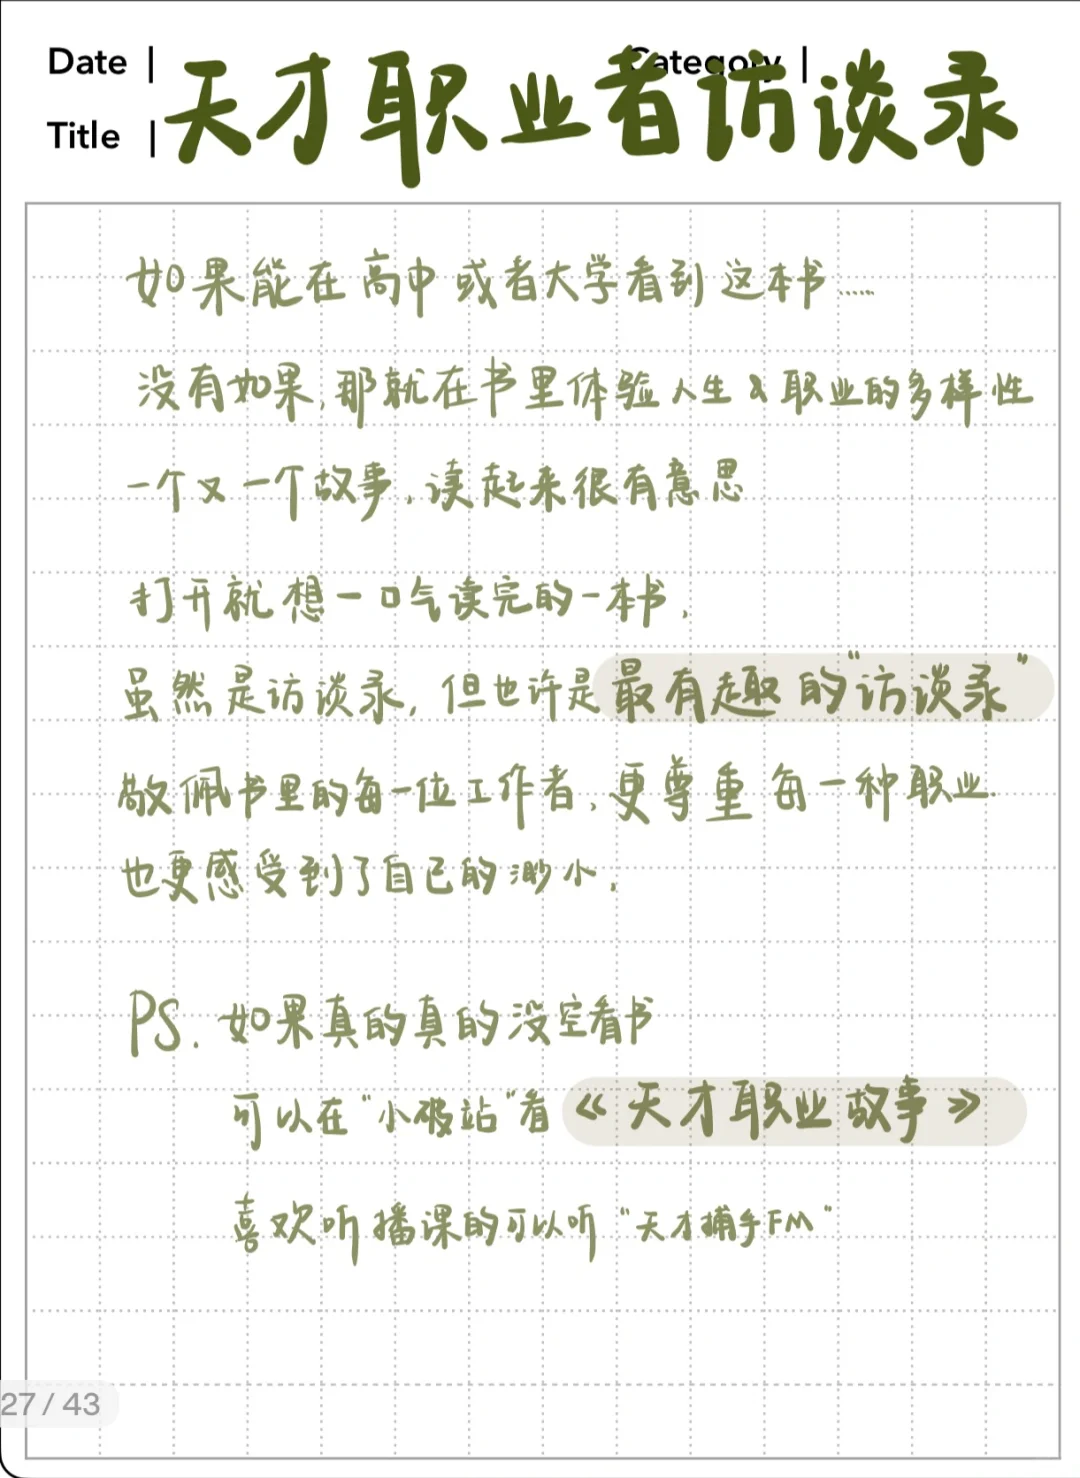 Date |
Category |
Title | 天才职业者访谈录
如果能在高中或者大学看到这本书……
没有如果,那就在书里体验人生&职业的多样性
一个又一个故事,读起来很有意思
打开就想一口气读完的一本书,
虽然是访谈录,但也许是最有趣的“访谈录”
敬佩书里的每一位工作者,更尊重每一种职业.
也更感受到了自己的渺小.
PS. 如果真的真的没空看书
可以在“小破站”看《天才职业故事》
喜欢听播课的可以听“天才捕手FM”
27 / 43